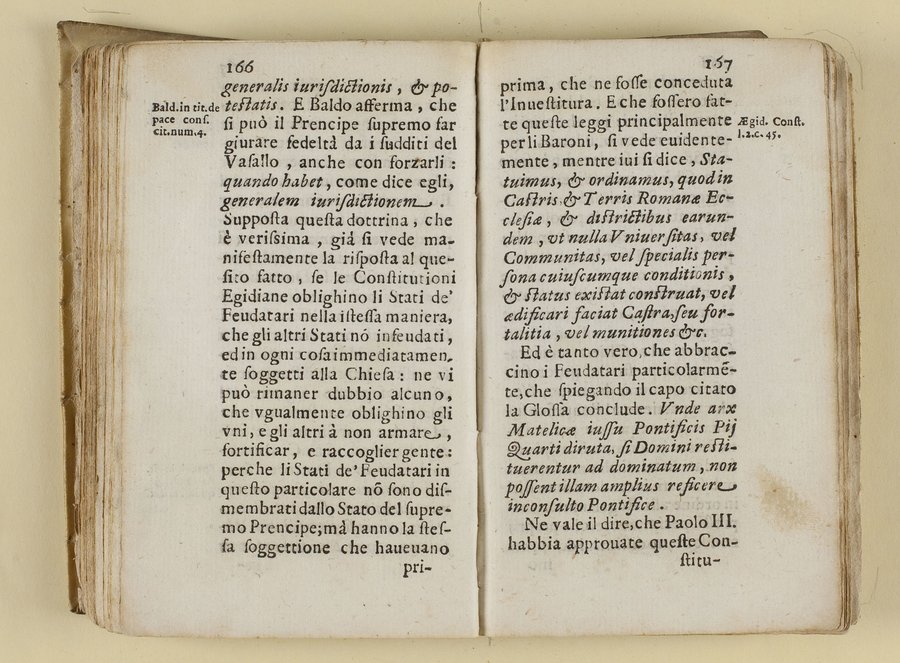 166
generalis iuriſdictionis, & po-
teſtatis. E Baldo afferma, che
ſi può il Prencipe ſupremo far
giurare fedeltà da i ſudditi del
Vaſallo, anche con forzarli:
quando habet, come dice egli,
generalem iuriſdictionem.
Suppoſta queſta dottrina, che
è veriſsima, già ſi vede ma-
nifeſtamente la riſpoſta al que-
ſito fatto, ſe le Conſtitutioni
Egidiane oblighino li Stati de'
Feudatari nella iſteſſa maniera,
che gli altri Stati nõ infeudati,
ed in ogni coſa immediatamen-
te ſoggetti alla Chieſa: ne vi
può rimaner dubbio alcuno,
che vgualmente oblighino gli
vni, e gli altri à non armare,
fortificar, e raccoglier gente:
perche li Stati de' Feudatari in
queſto particolare nõ ſono diſ-
membrati dallo Stato del ſupre-
mo Prencipe; mà hanno la ſteſ-
ſa ſoggettione che haueuano
pri-
Bald. in tit. de
pace conſ.
cit. num. 4.
167
prima, che ne foſſe conceduta
l'Inueſtitura. E che foſſero fat-
te queſte leggi principalmente
per li Baroni, ſi vede euidente-
mente, mentre iui ſi dice, Sta-
tuimus, & ordinamus, quod in
Caſtris & Terris Romanæ Ec-
cleſiæ, & diſtrictibus earun-
dem, vt nulla Vniuerſitas, vel
Communitas, vel ſpecialis per-
ſona cuiuſcumque conditionis,
& ſtatus exiſtat conſtruat, vel
ædificari faciat Caſtra, ſeu for-
talitia, vel munitiones &c.
Ed è tanto vero, che abbrac-
cino i Feudatari particolarmẽ-
te, che ſpiegando il capo citato
la Gloſſa conclude. Vnde arx
Matelicæ iuſſu Pontificis Pij
Quarti diruta, ſi Domini reſti-
tuerentur ad dominatum, non
poſſent illam amplius reficere
inconſulto Pontifice.
Ne vale il dire, che Paolo III.
habbia approuate queſte Con-
ſtitu-
Ægid. Conſt.
l. 2. c. 45.